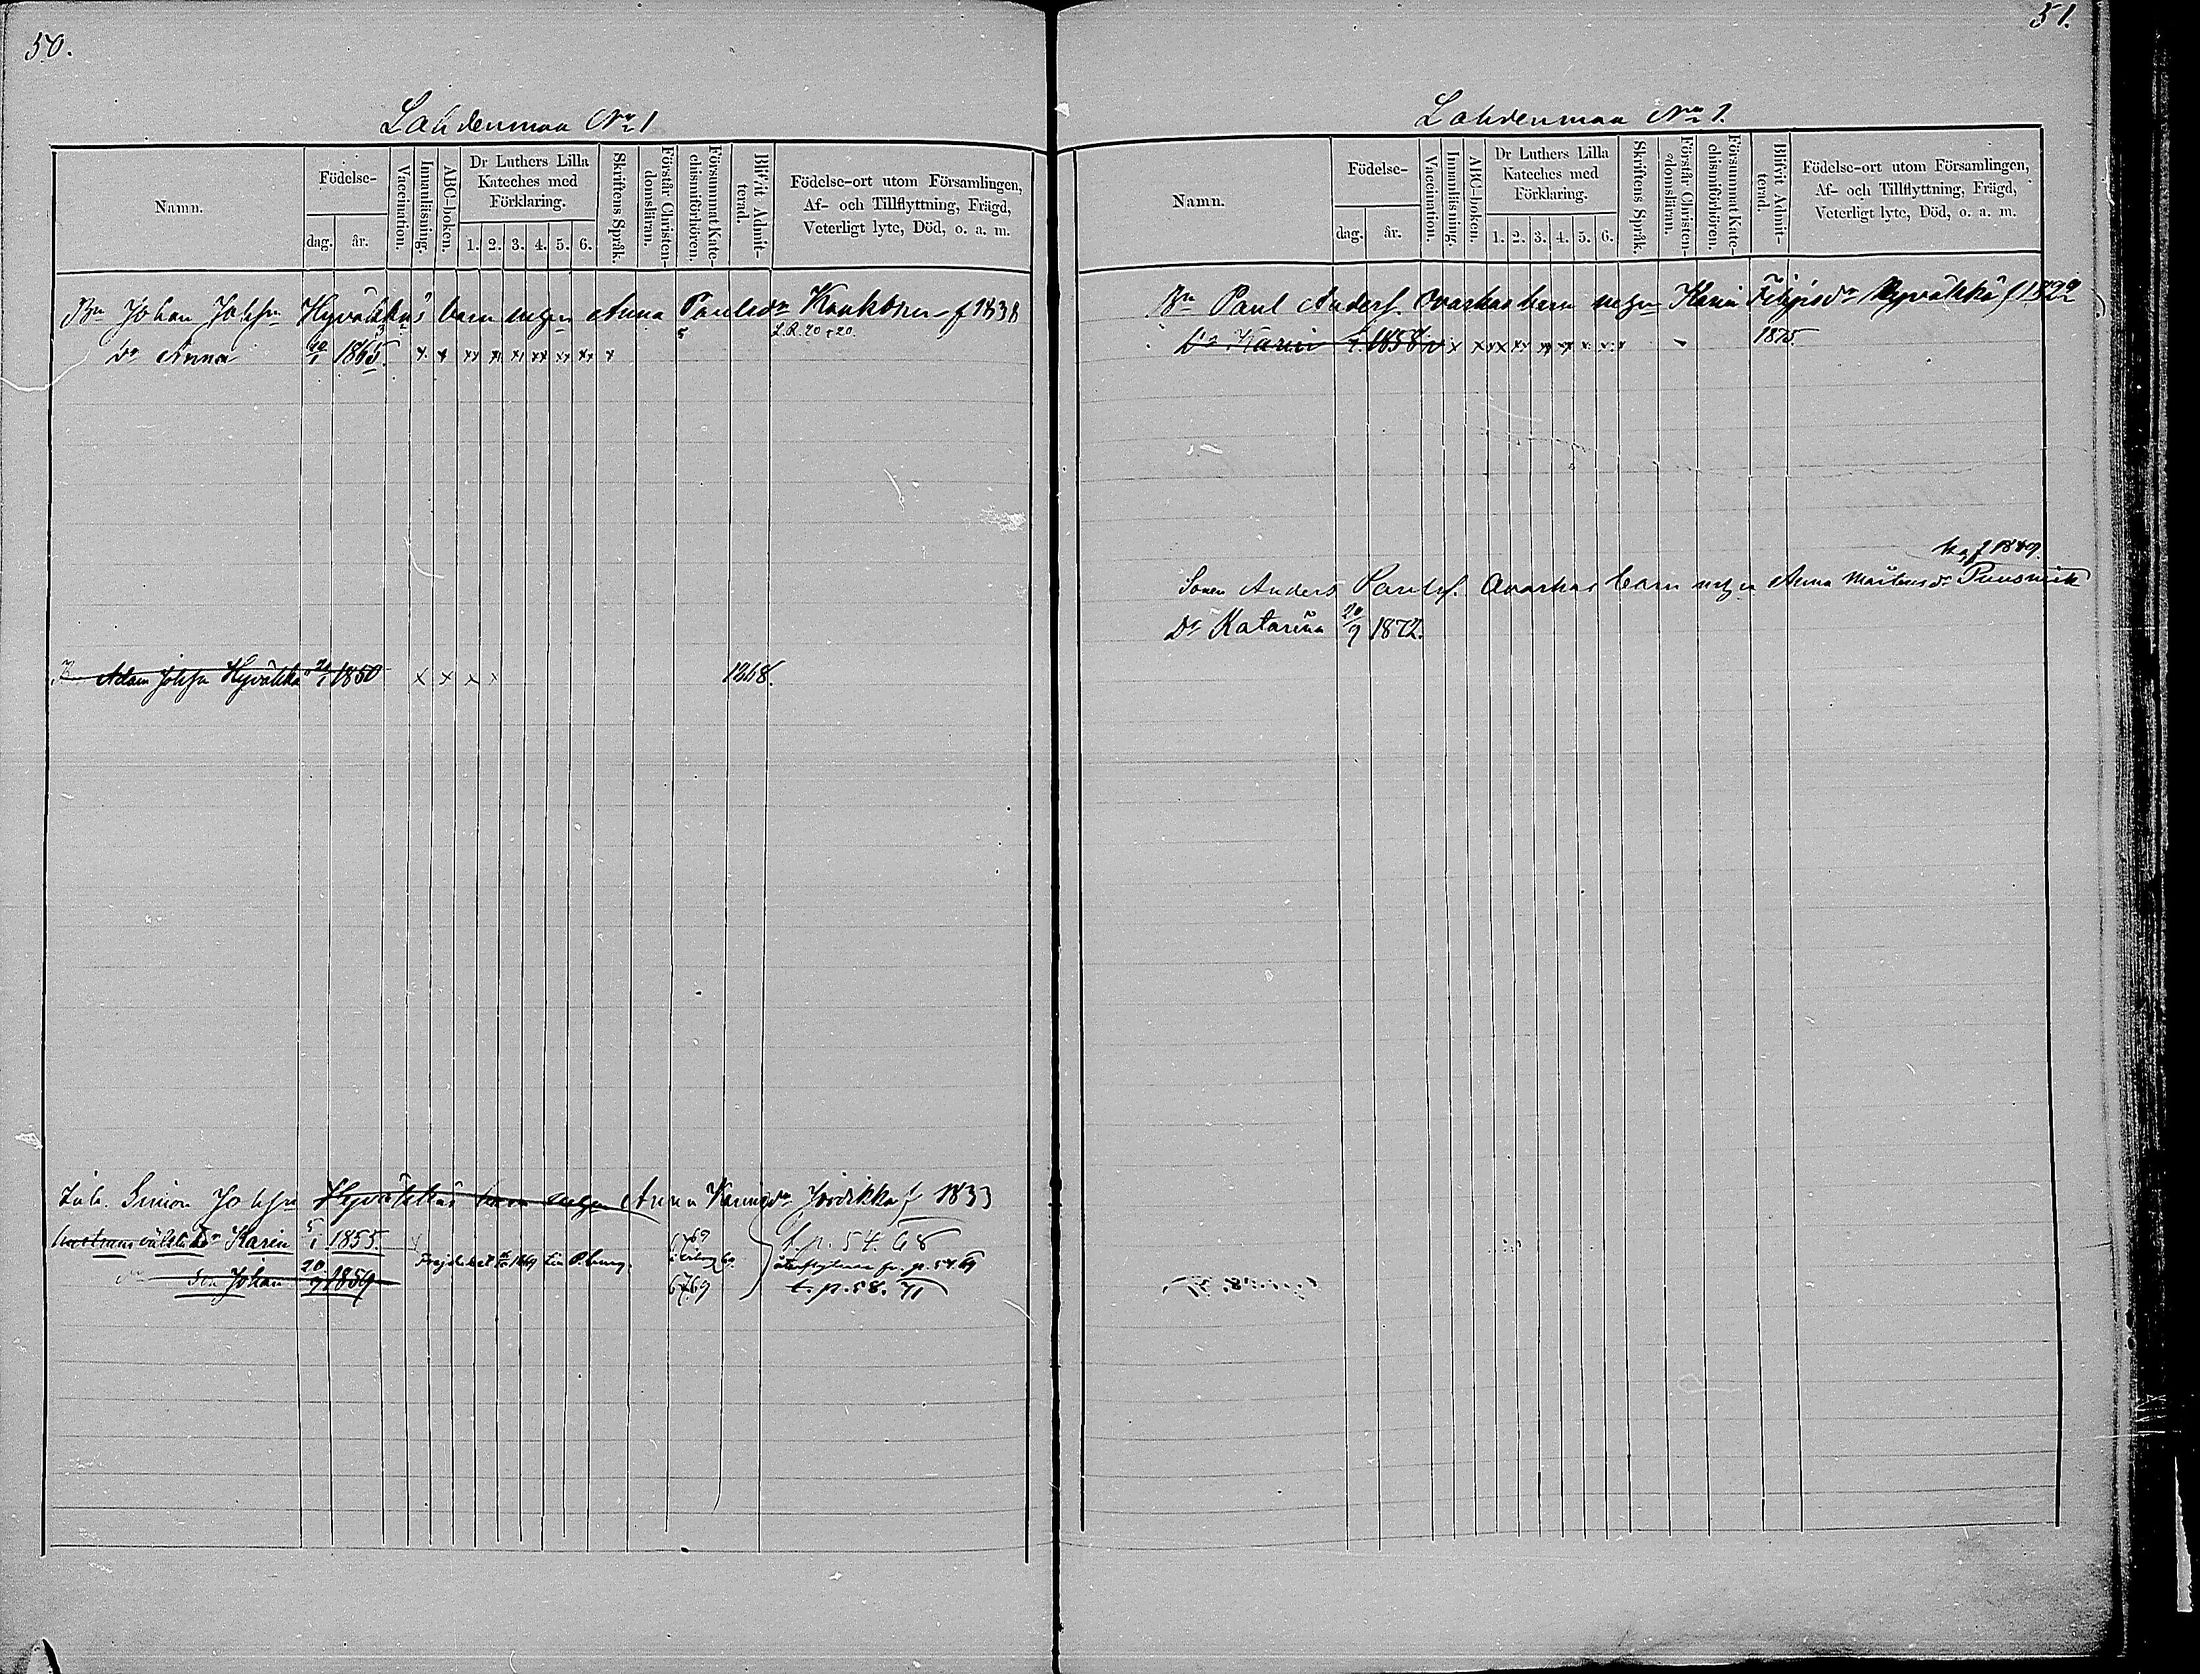 50.
Lahdenmaa No 1
Namn.
Födelse-
dag.
år.
Vaccination.
Innanläsning.
ABC-boken.
Dr Luthers Lilla
Kateches med
Förklaring.
1. 2. 3. 4. 5. 6.
Skriftens Språk.
Förstår Christen-
domsläran.
Försummat Kate-
chismiförhören.
Blifvit Admit-
terad.
Födelse-ort utom Församlingen,
Af- och Tillflyttning, Frägd,
Veterligt lyte, Död, o. a. m.
Bn Johan Johsn Hyväkkäs barn m Anna Paulsdr f 1838
Dr Anna 1865 x x xx xx xx xx xx xx x
Adam Johsn Hyväkkä 1850 x x x x 1868.
Simon Johsn Hyväkkäs barn Anna f 1833
Karin 5/1 1855. t. p. 54. 68
Son Johan 20/9 1859 t. p. 58. 71
51.
Lahdenmaa No 1.
Namn.
Födelse-
dag.
år.
Vaccination.
Innanläsning.
ABC-boken.
Dr Luthers Lilla
Kateches med
Förklaring.
1. 2. 3. 4. 5. 6.
Skriftens Språk.
Förstår Christen-
domsläran.
Försummat Kate-
chismiförhören.
Blifvit Admit-
terad.
Födelse-ort utom Församlingen,
Af- och Tillflyttning, Frägd,
Veterligt lyte, Död, o. a. m.
Bn Paul Andersn Ovaskas barn m Karin Filipsdr Hyväkkä f 1822
Dr Karin 1858 1875.
f 1849.
Sonen Anders Paulsn Ovaskas barn m Anna Mårtensdr
Dr Katarina 20/9 1872.